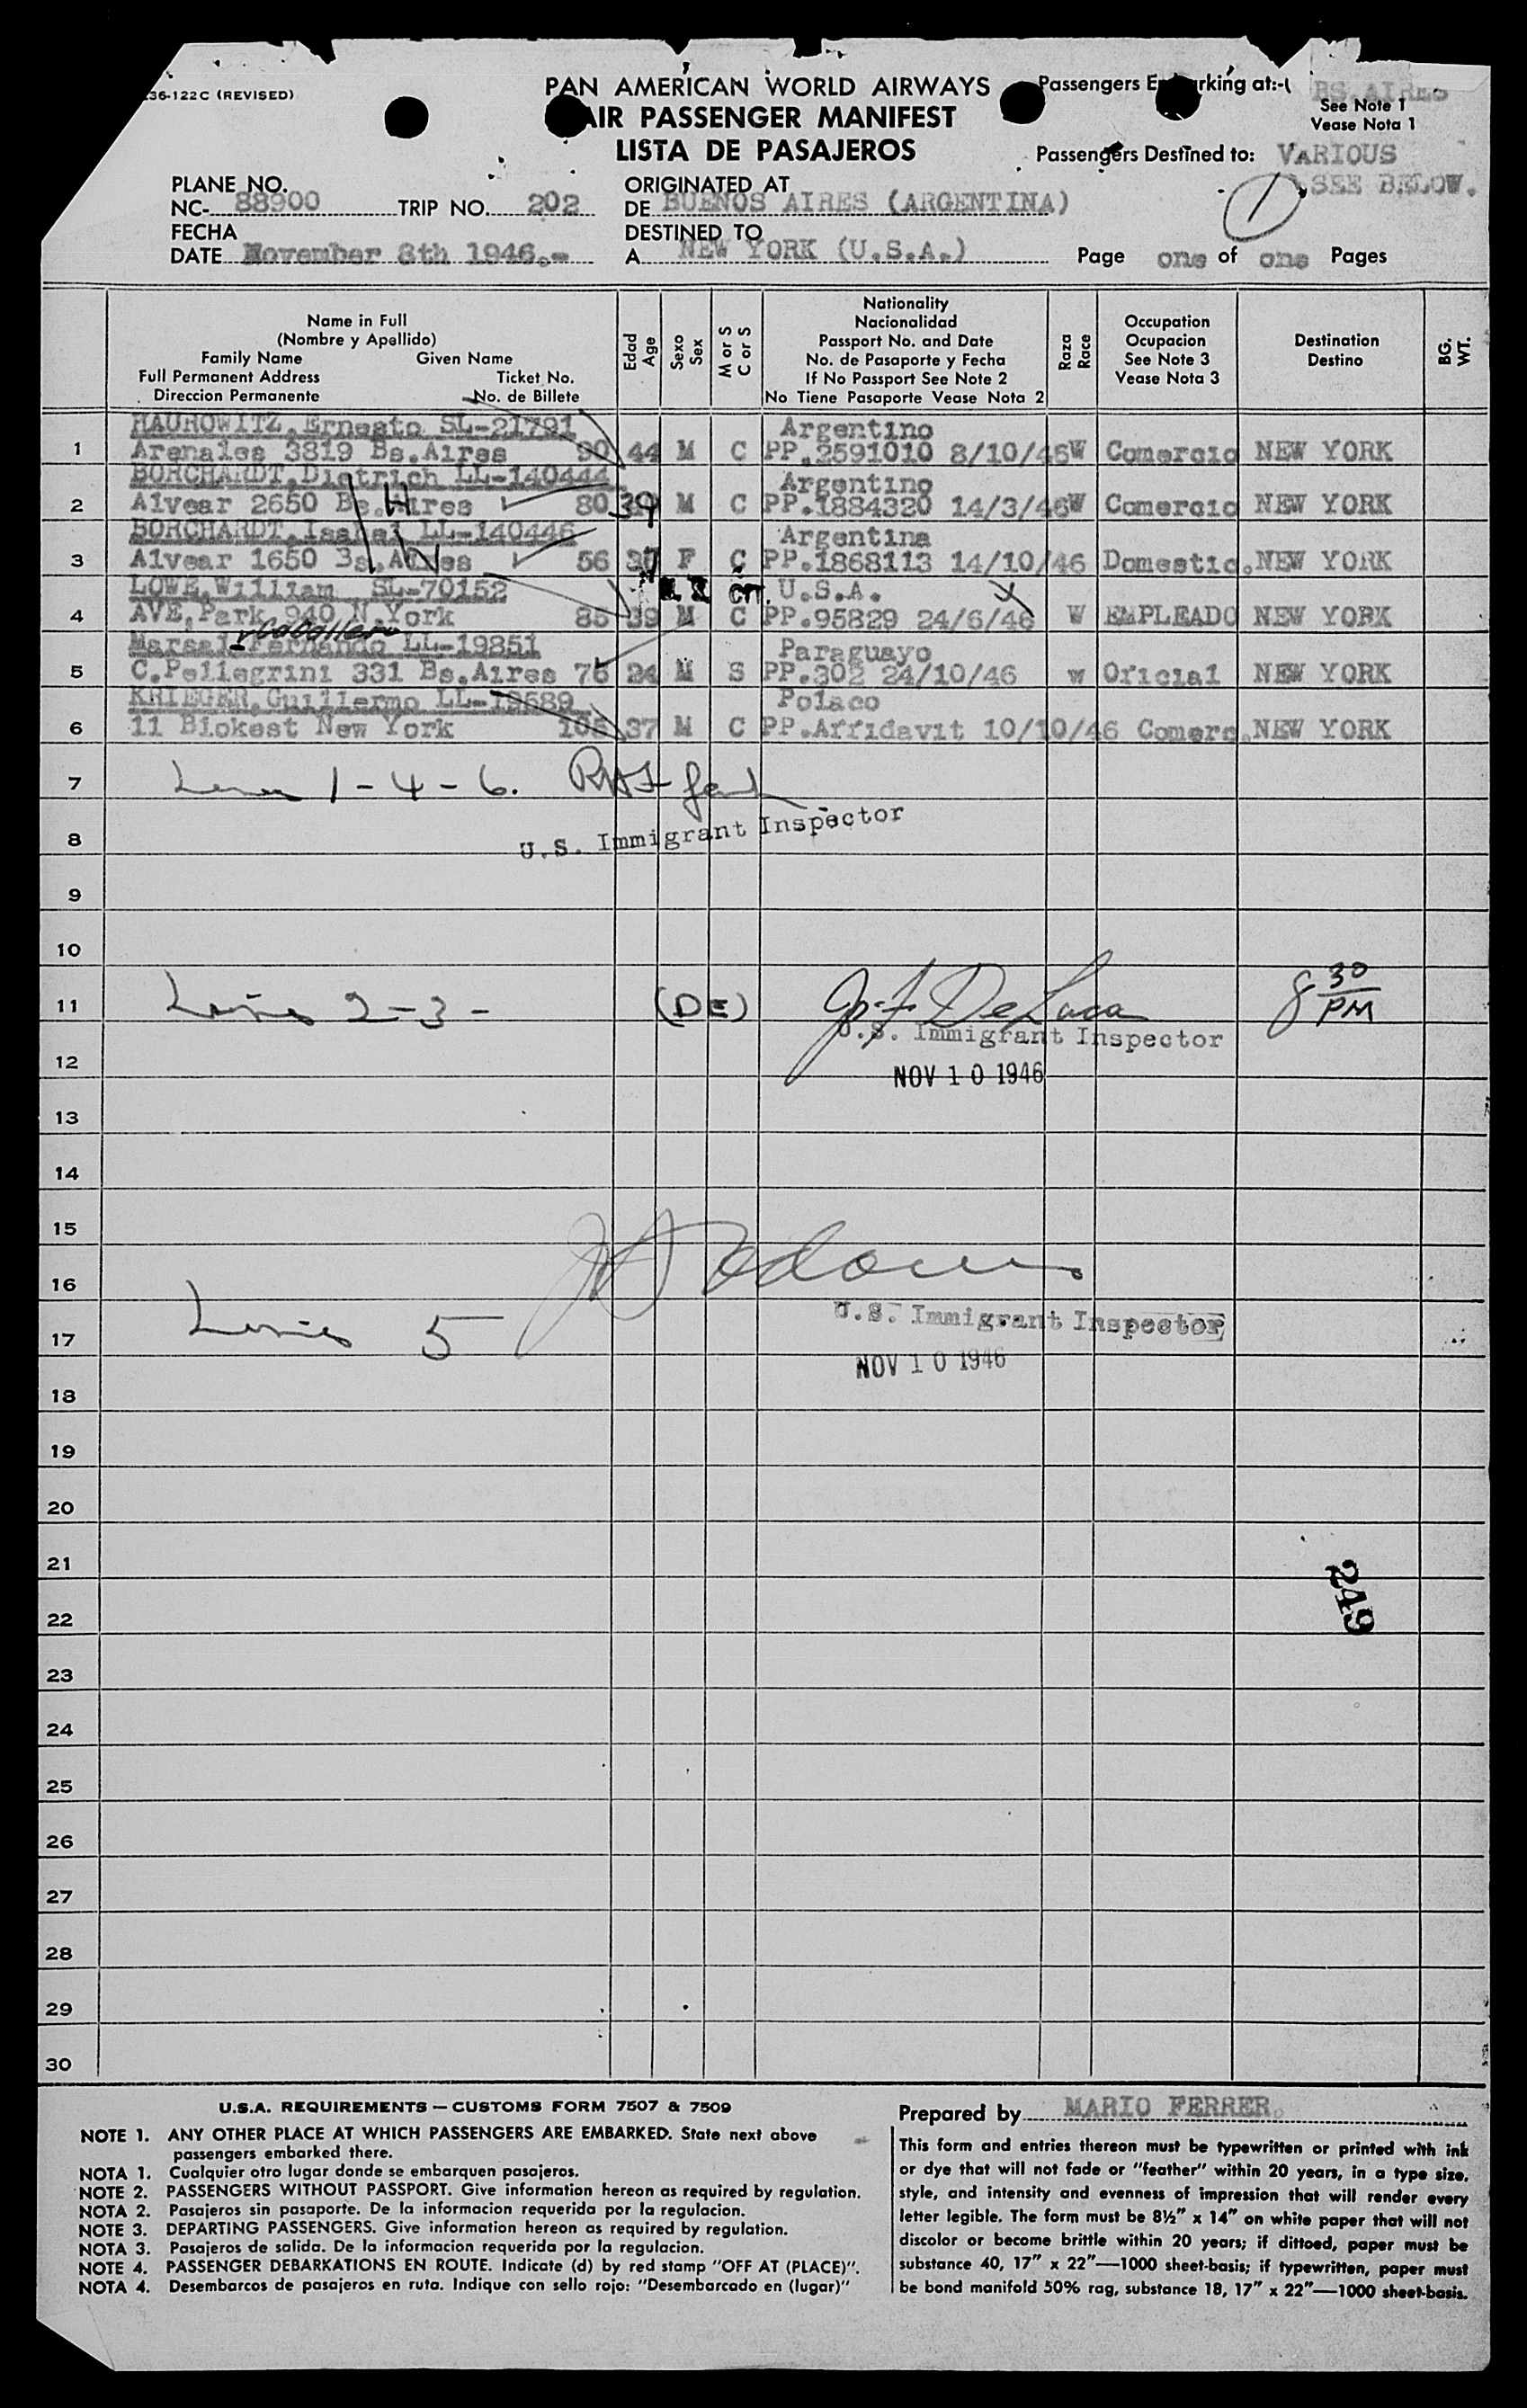 36-122C (REVISED)
PAN AMERICAN WORLD AIRWAYS
AIR PASSENGER MANIFEST
LISTA DE PASAJEROS
Passengers Embarking at:-( BS.AIRES
See Note 1
Vease Nota 1
Passengers Destined to: VARIOUS
SEE BELOW.
1
PLANE NO.
NC- 88900 TRIP NO. 202
FECHA
DATE November 8th 1946.-
ORIGINATED AT
DE BUENOS AIRES (ARGENTINA)
DESTINED TO
A NEW YORK (U.S.A.)
Page one of one Pages
Name in Full
(Nombre y Apellido)
Family Name Given Name
Full Permanent Address Ticket No.
Direccion Permanente No. de Billete
Edad
Age
Sexo
Sex
M or S
C or S
Nationality
Nacionalidad
Passport No. and Date
No. de Pasaporte y Fecha
If No Passport See Note 2
No Tiene Pasaporte Vease Nota 2
Raza
Race
Occupation
Ocupacion
See Note 3
Vease Nota 3
Destination
Destino
BG.
WT.
HAUROWITZ,Ernesto SL-21791 Argentino
1 Arenales 3819 Bs.Aires 90 44 M C PP.2591010 8/10/46 W Comercio NEW YORK
BORCHARDT,Dietrich LL-140444 Argentino
2 Alvear 2650 Bs.Aires 80 39 M C PP.1884320 14/3/46 W Comercio NEW YORK
H
BORCHARDT,Isabel LL-140446 Argentina
3 Alvear 1650 Bs.Aires 56 37 F C PP.1868113 14/10/46 Domestic. NEW YORK
LOWE,William SL-70152 U.S. CIT. U.S.A.
4 AVE,Park 940 N.York 85 39 M C PP.95829 24/6/46 W EMPLEADO NEW YORK
y Caballero
Marsal Fernando LL-19851 Paraguayo
5 C.Pellegrini 331 Bs.Aires 76 24 M S PP.302 24/10/46 w Oficial NEW YORK
KRIEGER,Guillermo LL-19689 Polaco
6 11 Biokest New York 105 37 M C PP.Affidavit 10/10/46 Comerc. NEW YORK
7 1-4-6.
8 U.S. Immigrant Inspector
9
10
11 Lines 2-3- (DE) J.F. DeLuca 8 30 PM
U.S. Immigrant Inspector
12 NOV 10 1946
13
14
15
16 Adams
17 Lines 5 U.S. Immigrant Inspector
NOV 10 1946
18
19
20
21
249
22
23
24
25
26
27
28
29
30
U.S.A. REQUIREMENTS — CUSTOMS FORM 7507 & 7509
NOTE 1. ANY OTHER PLACE AT WHICH PASSENGERS ARE EMBARKED. State next above
passengers embarked there.
NOTA 1. Cualquier otro lugar donde se embarquen pasajeros.
NOTE 2. PASSENGERS WITHOUT PASSPORT. Give information hereon as required by regulation.
NOTA 2. Pasajeros sin pasaporte. De la informacion requerida por la regulacion.
NOTE 3. DEPARTING PASSENGERS. Give information hereon as required by regulation.
NOTA 3. Pasajeros de salida. De la informacion requerida por la regulacion.
NOTE 4. PASSENGER DEBARKATIONS EN ROUTE. Indicate (d) by red stamp "OFF AT (PLACE)".
NOTA 4. Desembarcos de pasajeros en ruta. Indique con sello rojo: "Desembarcado en (lugar)"
Prepared by MARIO FERRER.
This form and entries thereon must be typewritten or printed with ink
or dye that will not fade or "feather" within 20 years, in a type size,
style, and intensity and evenness of impression that will render every
letter legible. The form must be 8½" x 14" on white paper that will not
discolor or become brittle within 20 years; if dittoed, paper must be
substance 40, 17" x 22"—1000 sheet-basis; if typewritten, paper must
be bond manifold 50% rag, substance 18, 17" x 22"—1000 sheet-basis.